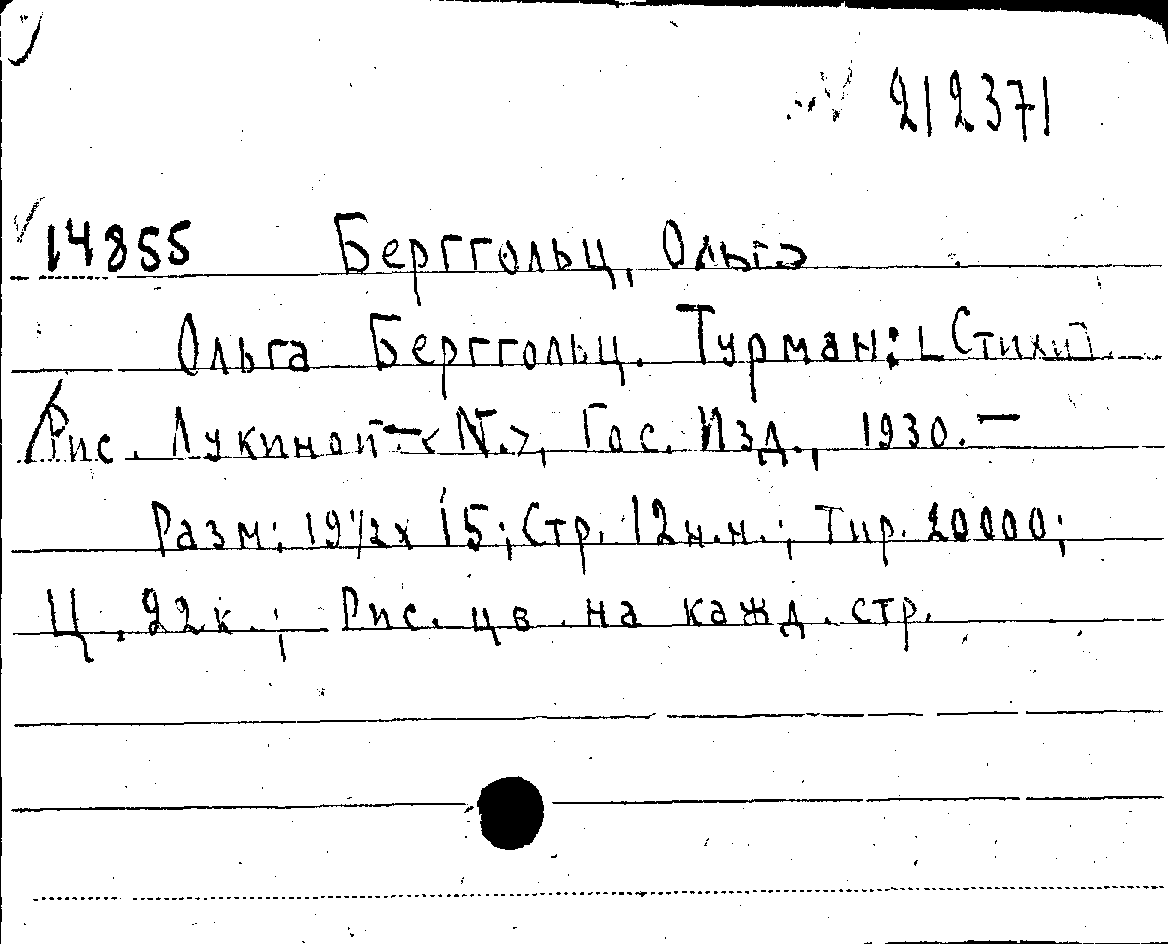 212371
14855 Берггольц, Ольга
Ольга Берггольц. Турман: [Стихи].
Рис. Лукиной.–<N.>, Гос. Изд., 1930.–
Разм: 19 1/2 x 15; Стр. 12 н.н.; Тир. 20000;
Ц. 22к.; Рис. цв. на кажд. стр.